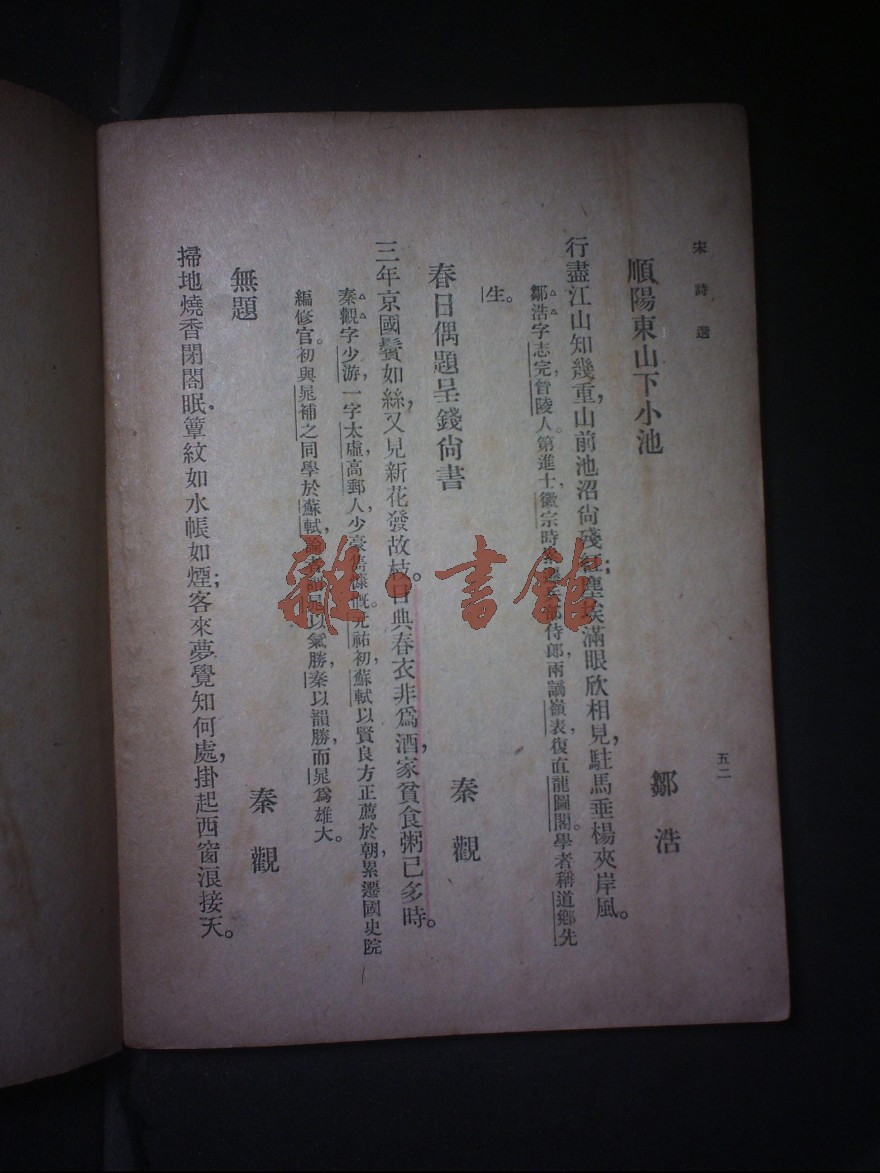 宋詩選
五二
順陽東山下小池
鄒浩
行盡江山知幾重，山前池沼尙殘紅；塵埃滿眼欣相見，駐馬垂楊夾岸風。
鄒浩字志完，晉陵人。第進士，徽宗時部侍郎，兩謫嶺表，復直龍圖閣。學者稱道鄉先
生。
春日偶題呈錢尙書
秦觀
三年京國鬢如絲，又見新花發故枝。日典春衣非爲酒，家貧食粥已多時。
秦觀字少游，一字太虛，高郵人，少豪慨。元祐初，蘇軾以賢良方正薦於朝，累遷國史院
編修官。初與晁補之同學於蘇軾，晁以氣勝，秦以韻勝，而晁爲雄大。
無題
秦觀
掃地燒香閉閣眠，簟紋如水帳如煙；客來夢覺知何處，掛起西窗浪接天。
雜·書館